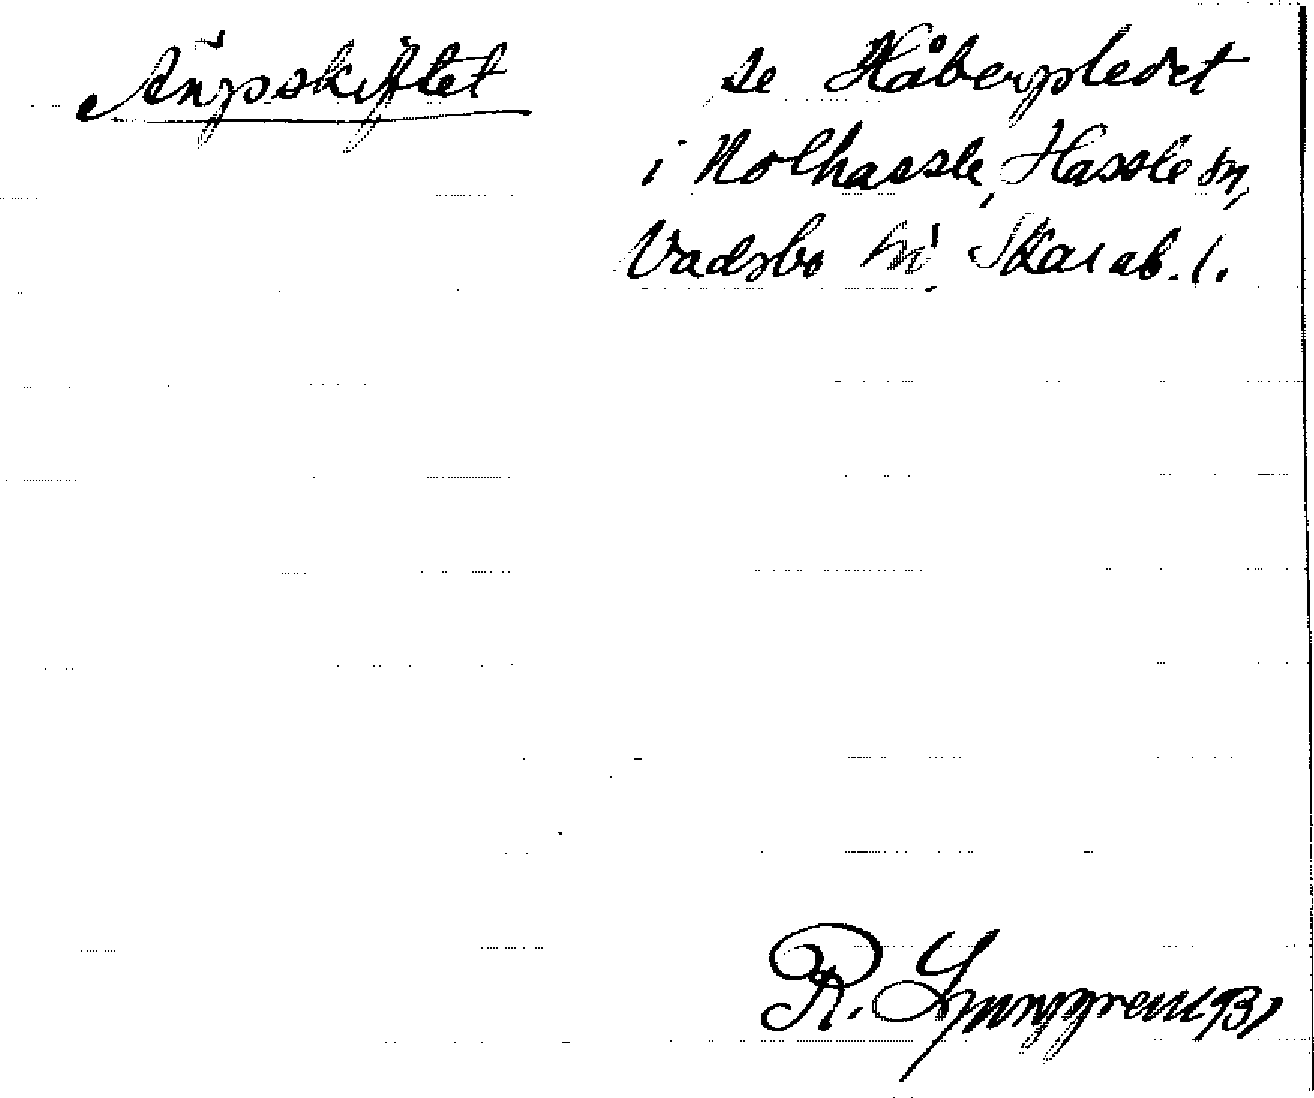 Ängsskiftet se Håbergsledet
i Nolhassle, Hassle sn,
Vadsbo hd, Skarab. l.
R. Ljunggren 1931